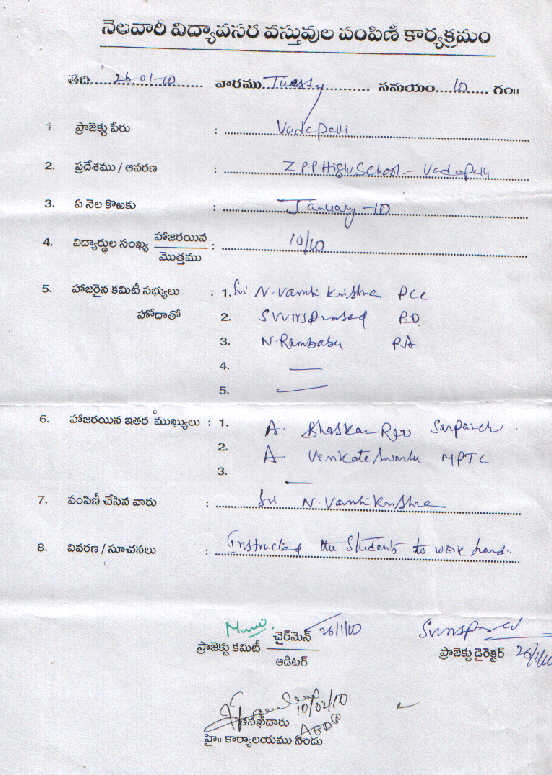 నెలవారీ విద్యావసర వస్తువుల పంపిణీ కార్యక్రమం
తేది 26.01.10 వారము Tuesday సమయం 10 గం॥
1 ప్రాజెక్టు పేరు : Vadapalli
2. ప్రదేశము / ఆవరణ : ZPP High School - Vadapally
3. ఏ నెల కొఱకు : January - 10
4. విద్యార్థుల సంఖ్య హాజరయిన / మొత్తము : 10/10
5. హాజరైన కమిటీ సభ్యులు : 1. Sri N. Vamsi Krishna PCC
హోదాతో 2. SVVNS Prasad P.D
3. N. Rambabu P.A
4. —
5. —
6. హాజరయిన ఇతర ముఖ్యులు : 1. A. Bhaskar Rao Sarpanch.
2. A Venkateswarlu MPTC
3. —
7. పంపిణీ చేసిన వారు : Sri N. Vamsi Krishna
8. వివరణ / సూచనలు : Instructed the Students to work hard.
ప్రాజెక్టు కమిటీ ఛైర్‌మెన్ / ఆడిటర్ 26/1/10
SVVNS Prasad
ప్రాజెక్టు డైరెక్టర్ 26/1/10
10/02/10
తనిఖీదారు
హై॥ కార్యాలయము నిండు